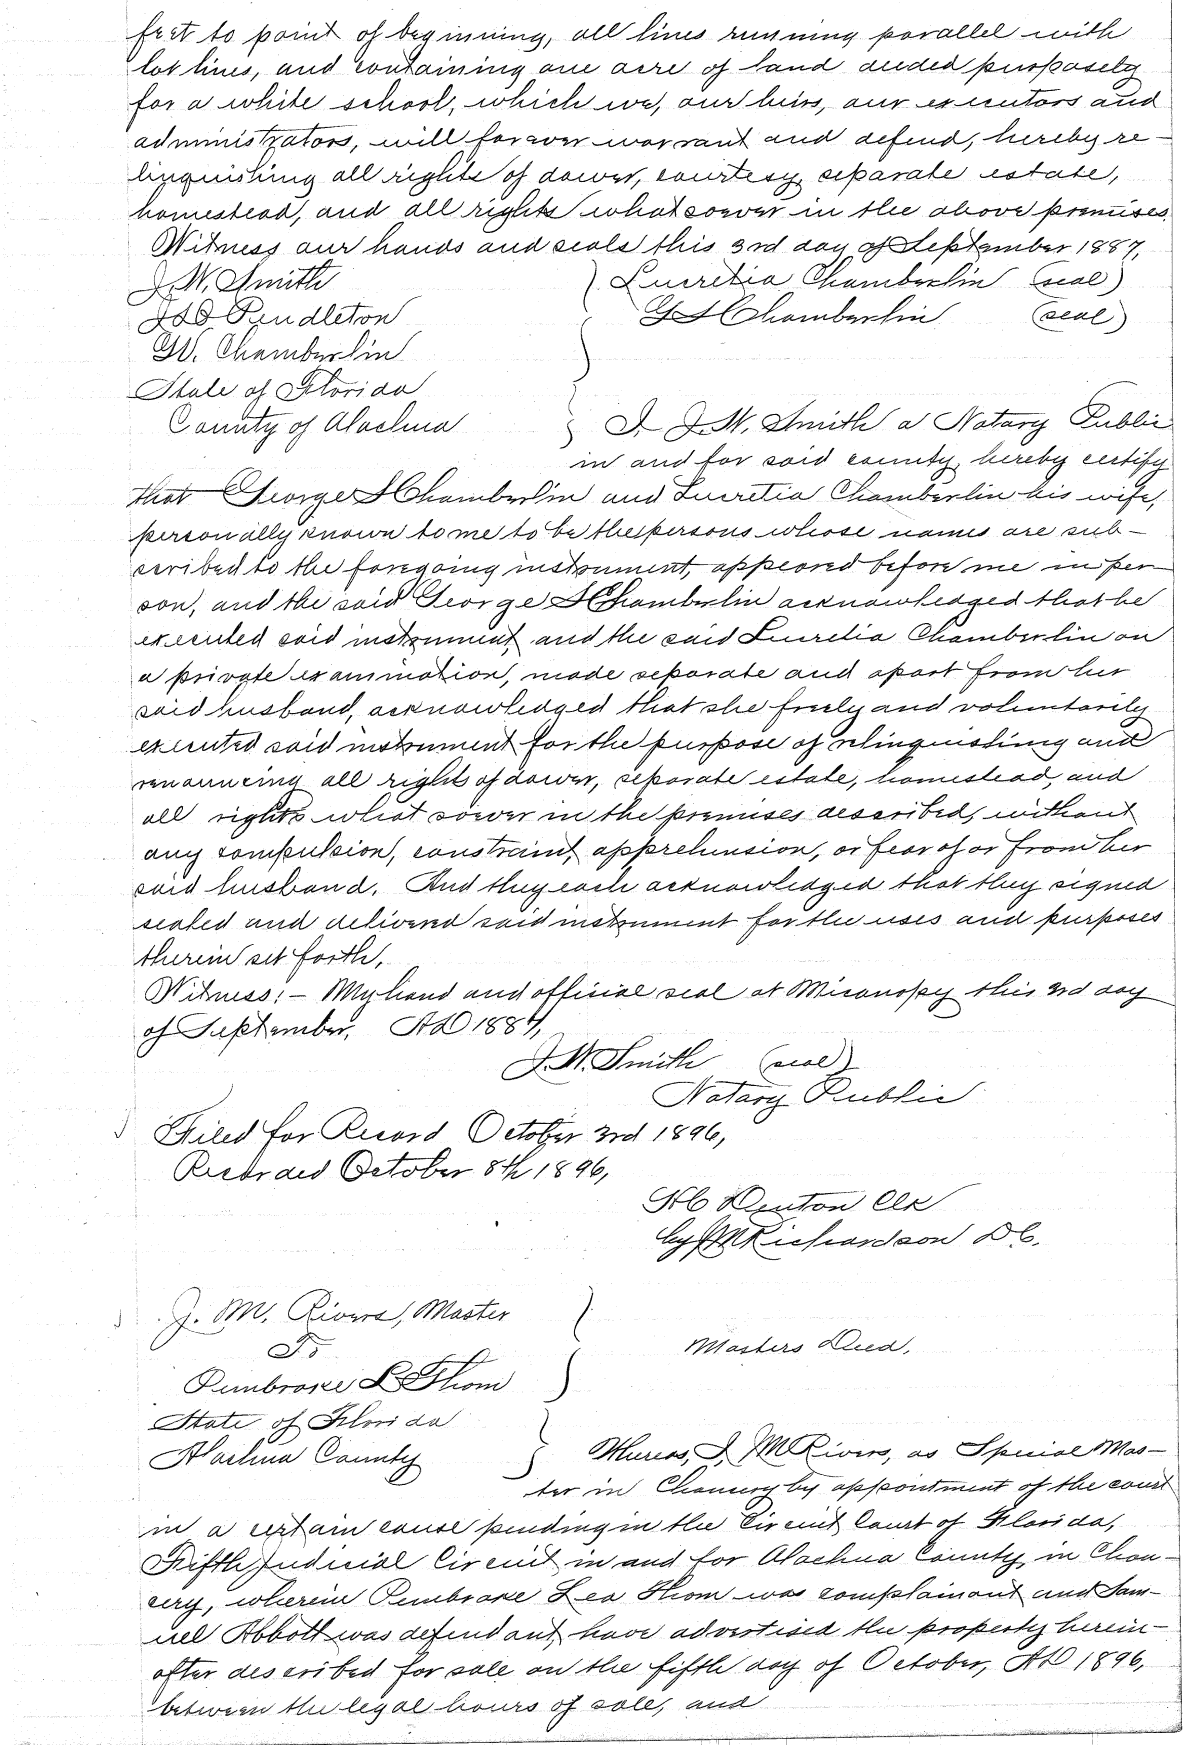 feet to point of beginning, all lines running parallel with
lot lines, and containing one acre of land deeded purposely
for a white school, which we, our heirs, our executors and
administrators, will forever warrant and defend, hereby re-
linquishing all rights of dower, courtesy, separate estate,
homestead, and all rights whatsoever in the above premises.
Witness our hands and seals this 3rd day of September 1887,
J. W. Smith } Lucretia Chamberlin (seal)
Pendleton G H Chamberlin (seal)
W. Chamberlin
State of Florida
County of Alachua } I J. W. Smith a Notary Public
in and for said county, hereby certify
that George H Chamberlin and Lucretia Chamberlin his wife,
personally known to me to be the persons whose names are sub-
scribed to the foregoing instrument, appeared before me in per
son, and the said George H Chamberlin acknowledged that he
executed said instrument, and the said Lucretia Chamberlin on
a private examination, made separate and apart from her
said husband, acknowledged that she freely and voluntarily
executed said instrument for the purpose of relinquishing and
renouncing all rights of dower, separate estate, homestead, and
all rights whatsoever in the premises described, without
any compulsion, constraint, apprehension, or fear of or from her
said husband. And they each acknowledged that they signed
sealed and delivered said instrument for the uses and purposes
therein set forth,
Witness:- My hand and official seal at Micanopy this 3rd day
of September, AD 1887,
J. W. Smith (seal)
Notary Public
Filed for Record October 3rd 1896,
Recorded October 8th 1896,
Denton Clk
by Richardson DC.
J. M. Rivers, Master }
To Masters Deed,
Pembroke L Thom }
State of Florida
Alachua County } Whereas, I, J M Rivers, as Special Mas-
ter in Chancery by appointment of the court
in a certain cause pending in the Circuit Court of Florida,
Fifth Judicial Circuit in and for Alachua County, in Chan-
cery, wherein Pembroke Lea Thom was complainant and Sam-
uel Abbott was defendant, have advertised the property herein-
after described for sale on the fifth day of October, AD 1896,
between the legal hours of sale, and